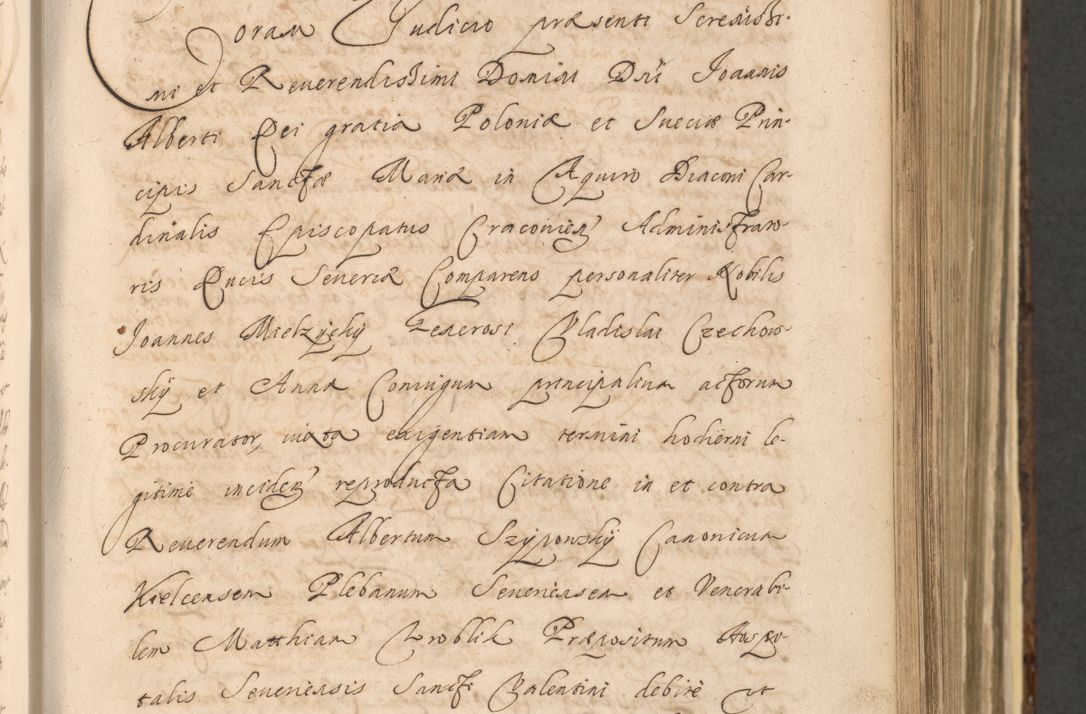 Coram Iudicio præsenti Serenissi-
mi et Reuerendissimi Domini Dnī Joannis
Alberti Dei gratia Poloniæ et Sueciæ Prin-
cipis Sanctæ Mariæ in Aquiro Diaconi Car-
dinalis Episcopatus Cracovieñ Administrato-
ris Ducis Severiæ Comparens personaliter Nobilis
Joannes Mielzycky Generosi Vladislai Czechow-
sky et Annæ Coniugum principalium actorum
Procurator, iuxta exigentiam termini hodierni le-
gitime incideñ reproducta Citatione in et contra
Reuerendum Albertum Szyponsky Canonicum
Kielcensem Plebanum Seueriensem et Venerabi-
lem Matthiam Wroblik Præpositum Hospi-
talis Seueriensis Sancti Valentini debite et